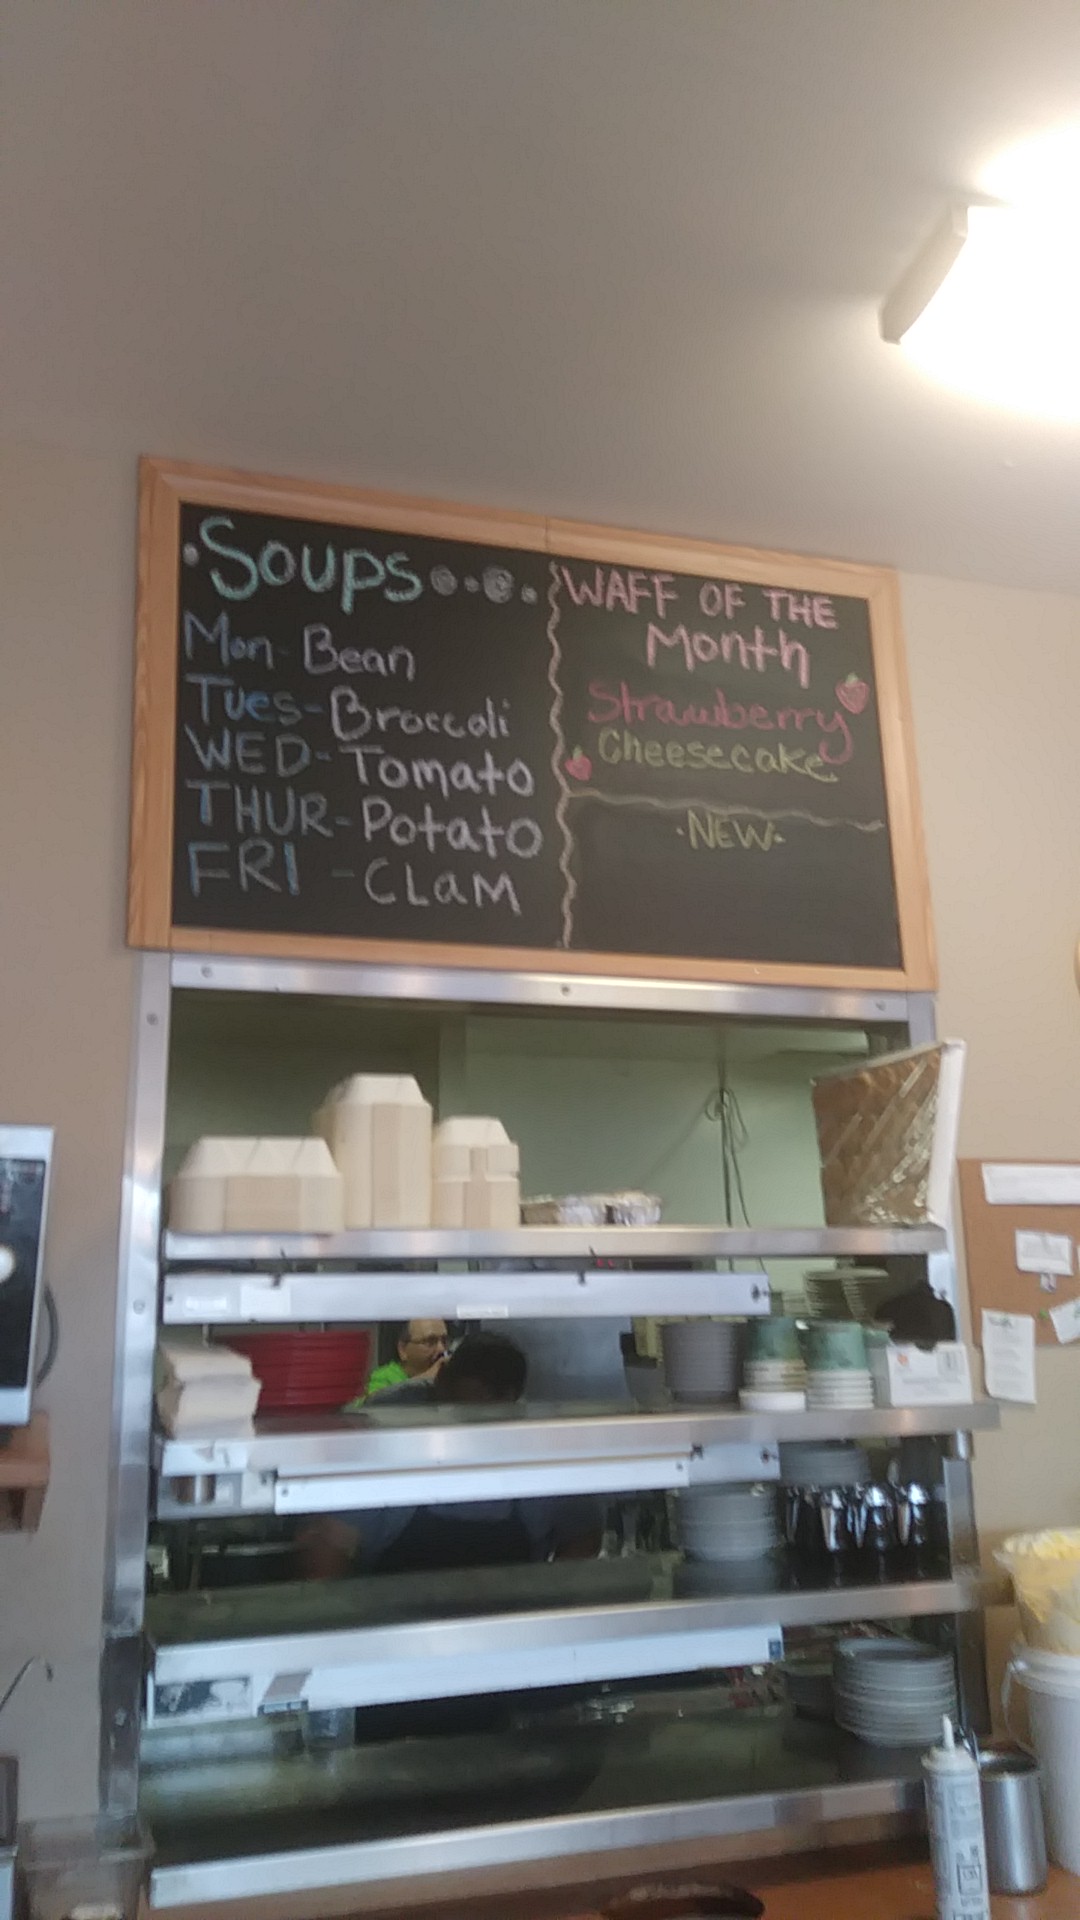 Soups
Mon-Bean
Tues-Broccoli
WED-Tomato
THUR-Potato
FRI-CLaM
WAFF OF THE
Month
Strawberry
Cheesecake
·NEW·